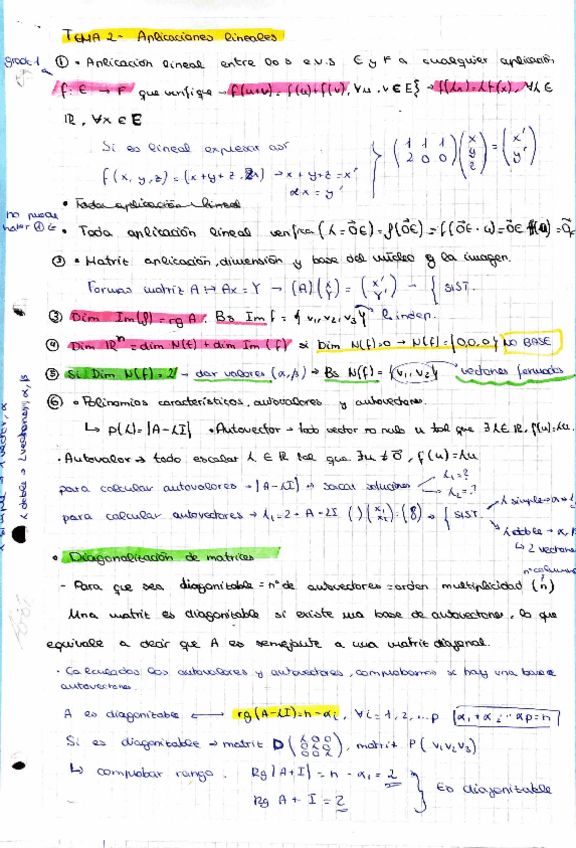 TEMA 2 - Aplicaciones lineales
grado 1
① • Aplicación lineal entre dos e.v.s E y F a cualquier aplicación
f: E → F que verifique → f(u+v) = f(u)+f(v), ∀u, v ∈ E} → f(λx)=λf(x), ∀λ ∈
R, ∀x ∈ E
Si es lineal expresar así
f(x, y, z) = (x+y+z, 2x) → x+y+z = x'
2x = y'
( 1 1 1 / 2 0 0 ) ( x y z ) = ( x' y' )
• Toda aplicación lineal
no puede haber
• Toda aplicación lineal verifica
② • Matriz aplicación, dimensión y base del núcleo y la imagen.
Formas matriz A → Ax = Y → (A)(x y) = (x' y') → { SIST.
③ Dim Im(f) = rg A. Bs Im f = { v₁, v₂, v₃ } l. indep.
④ Dim Rⁿ = dim N(f) + dim Im(f) si Dim N(f)=0 → N(f) = {0,0,0} NO BASE
⑤ Si Dim N(f) = 2 → dar valores (α, β) → Bs N(f) = { v₁, v₂ } vectores formados
⑥ • Polinomios característicos, autovalores y autovectores.
↳ P(λ) = |A-λI| • Autovector → todo vector no nulo u tal que ∃λ∈R, f(u)=λu
• Autovalor → todo escalar λ ∈ R tal que ∃u ≠ 0, f(u) = λu
para calcular autovalores → |A-λI| → sacar soluciones λ₁=? λ₂=?
para calcular autovectores → λ₁=2 → A-2I ( )(x₁ x₂) = (0 0) → { SIST.
λ simple → α
λ doble → α, β
↳ 2 vectores
• Diagonalización de matrices
nº columnas
- Para que sea diagonizable = nº de autovectores = orden multiplicidad (n)
Una matriz es diagonizable si existe una base de autovectores, lo que
equivale a decir que A es semejante a una matriz diagonal.
• Calculados los autovalores y autovectores, comprobamos si hay una base
autovectores
A es diagonizable ⟷ rg(A-λI)=n-αi, ∀i=1, 2, ...p α₁+α₂...αp=n
Si es diagonizable → matriz D, matriz P (v₁ v₂ v₃)
↳ comprobar rango. Rg|A+I| = n - α₁ = 2
Rg A - I = 2
Es diagonizable
λ doble → 2 vectores, α, β